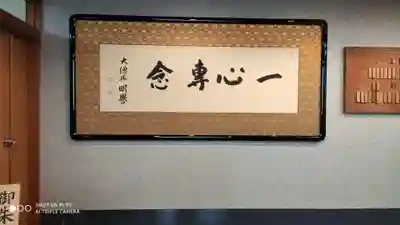 一心専念
大僧正 明譽
御朱
SHOT ON MI 9T
AI TRIPLE CAMERA